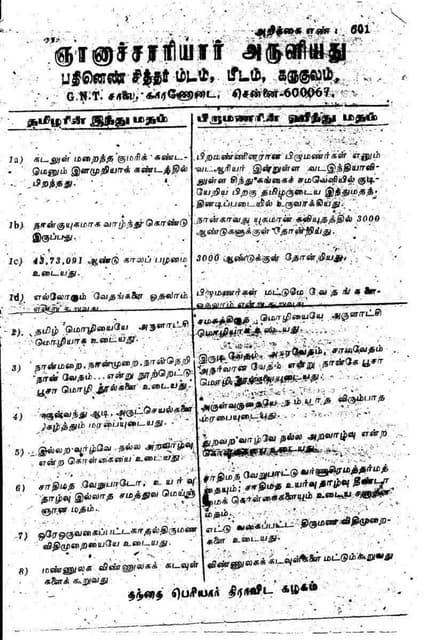 அறிக்கை எண் : 601
ஞானாச்சாரியார் அருளியது
பதினெண் சித்தர் மடம், பீடம், கருகுலம்,
G.N.T. சாலை, காரணோடை, சென்னை-600067.
தமிழரின் இந்து மதம்
பிறமணரின் ஹிந்து மதம்
1a) கடலுள் மறைந்த குமரிக் கண்ட
மெனும் இளமுறியாக் கண்டத்தில்
பிறந்தது.
பிறமண்ணினரான பிறமணர்கள் எனும்
வட ஆரியர் இன்றுள்ள வட இந்தியாவி
லுள்ள சிந்து கங்கைச் சமவெளியில் குடி
யேறிய பிறகு தமிழருடைய இந்துமதத்
தினடிப்படையில் உருவாக்கியது.
1b) நான்குயுகமாக வாழ்ந்து கொண்டு
இருப்பது.
நான்காவது யுகமான கலியுகத்தில் 3000
ஆண்டுகளுக்குள் தோன்றியது.
1c) 43,73,091 ஆண்டு காலப் பழமை
உடையது.
3000 ஆண்டுக்குள் தோன்றியது.
1d) எல்லோரும் வேதங்களை ஓதலாம்
என்று கூறுவது
பிறமணர்கள் மட்டுமே வேதங்களை
ஓதலாம் என்று கூறுவது
2) தமிழ் மொழியையே அருளாட்சி
மொழியாக உடையது.
சமசுக்கிருத மொழியையே அருளாட்சி
மொழியாக உடையது.
3) நான்மறை, நான்முறை, நான்நெறி
நான் வேதம்... என்று நூற்றெட்டுப்
பூசா மொழி நூல்களை உடையது.
இருடி வேதம், அசுரவேதம், சாமவேதம்
அதர்வான வேதம் என்று நான்கே பூசா
மொழி நூல்களையுடையது.
4) அருள்வந்து ஆடி, அருட்செயல்களை
நிகழ்த்தும் மரபையுடையது.
அருள்வருதையே நம்பாத விரும்பாத
மரபையுடையது.
5) இல்லறவாழ்வே நல்ல அறவாழ்வு
என்ற கொள்கையை உடையது.
துறவறவாழ்வே நல்ல அறவாழ்வு என்ற
6) சாதிமத வேறுபாடோ, உயர்வு
தாழ்வு இல்லாத சமத்துவ மெய்ஞ்
ஞான மதம்.
சாதிமத வேறுபாட்டு வர்ணாசிரமத்தர்மத்
தையும்; சாதிமத உயர்வு தாழ்வு தீண்டா
மைக் கொள்கைகளையும் உடைய
மதம்.
7) ஒரேஒருவகைப்பட்ட காதல்திருமண
விதிமுறையையே உடையது.
எட்டு வகைப்பட்ட திருமண விதிமுறை
களை உடையது.
8) மண்ணுலக விண்ணுலகக் கடவுள்
களைக் கூறுவது
விண்ணுலகக் கடவுள்களை மட்டும் கூறுவது
தந்தை பெரியார் திராவிட கழகம்